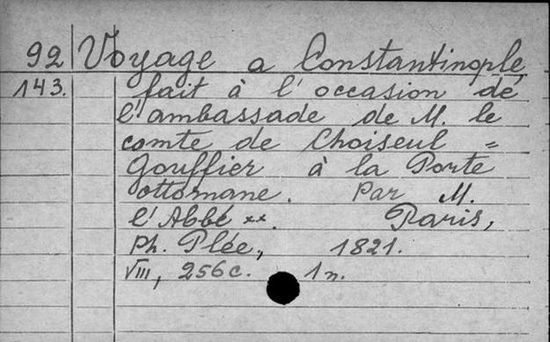 92 Voyage a Constantinople,
143. fait à l'occasion de
l'ambassade de M. le
comte de Choiseul =
Gouffier à la Porte
ottomane. Par M.
l'Abbé **. Paris,
Ph. Plée, 1821.
VIII, 256c. 1n.